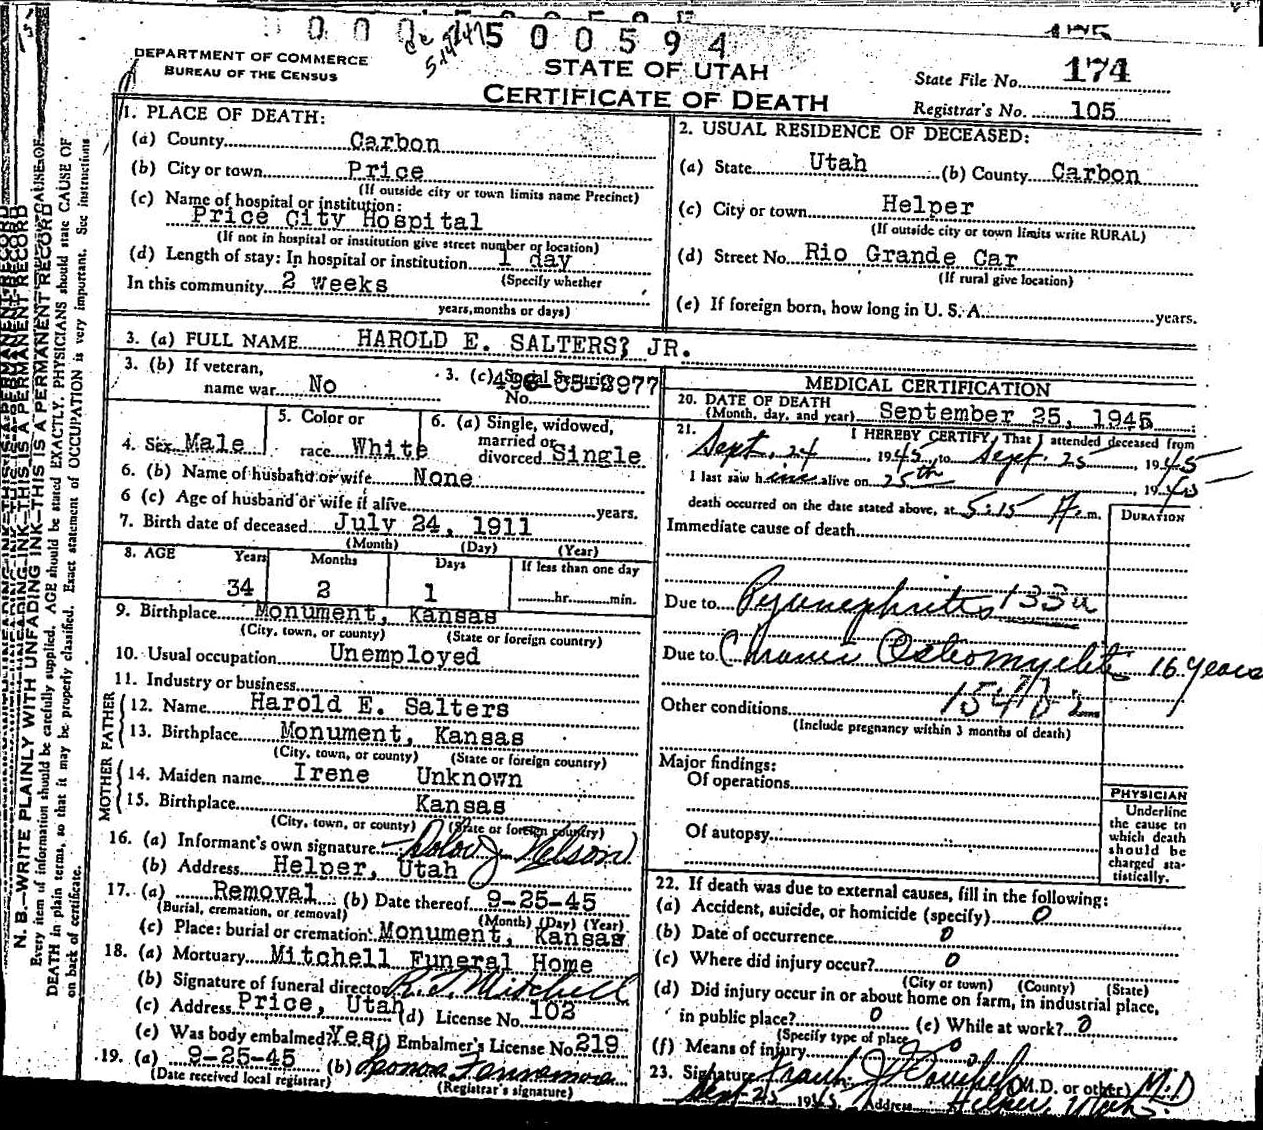 500594
DEPARTMENT OF COMMERCE
BUREAU OF THE CENSUS
STATE OF UTAH
CERTIFICATE OF DEATH
State File No. 174
Registrar's No. 105
N. B.—WRITE PLAINLY WITH UNFADING INK—THIS IS A PERMANENT RECORD
Every item of information should be carefully supplied. AGE should be stated EXACTLY. PHYSICIANS should state CAUSE OF
DEATH in plain terms, so that it may be properly classified. Exact statement of OCCUPATION is very important. See instructions
on back of certificate.
1. PLACE OF DEATH:
(a) County Carbon
(b) City or town Price
(If outside city or town limits name Precinct)
(c) Name of hospital or institution:
Price City Hospital
(If not in hospital or institution give street number or location)
(d) Length of stay: In hospital or institution 1 day
(Specify whether
In this community 2 weeks
years, months or days)
2. USUAL RESIDENCE OF DECEASED:
(a) State Utah (b) County Carbon
(c) City or town Helper
(If outside city or town limits write RURAL)
(d) Street No. Rio Grande Car
(If rural give location)
(e) If foreign born, how long in U. S. A. years.
3. (a) FULL NAME HAROLD E. SALTERS, JR.
3. (b) If veteran,
name war No
3. (c) Social Security
No.
4. Sex Male
5. Color or
race White
6. (a) Single, widowed,
married or
divorced Single
6. (b) Name of husband or wife None
6 (c) Age of husband or wife if alive years.
7. Birth date of deceased July 24, 1911
(Month) (Day) (Year)
8. AGE Years Months Days If less than one day
34 2 1 hr. min.
9. Birthplace Monument, Kansas
(City, town, or county) (State or foreign country)
10. Usual occupation Unemployed
11. Industry or business
FATHER
12. Name Harold E. Salters
13. Birthplace Monument, Kansas
(City, town, or county) (State or foreign country)
MOTHER
14. Maiden name Irene Unknown
15. Birthplace Kansas
(City, town, or county) (State or foreign country)
16. (a) Informant's own signature Nelson
(b) Address Helper, Utah
17. (a) Removal (b) Date thereof 9-25-45
(Burial, cremation, or removal) (Month) (Day) (Year)
(c) Place: burial or cremation Monument, Kansas
18. (a) Mortuary Mitchell Funeral Home
(b) Signature of funeral director Mitchell
(c) Address Price, Utah (d) License No. 102
(e) Was body embalmed? Yes (f) Embalmer's License No. 219
19. (a) 9-25-45 (b)
(Date received local registrar) (Registrar's signature)
MEDICAL CERTIFICATION
20. DATE OF DEATH
(Month, day, and year) September 25, 1945
21. I HEREBY CERTIFY, That I attended deceased from
Sept. 24, 1945, to Sept. 25, 1945
I last saw him alive on 25th, 1945
death occurred on the date stated above, at 5:15 A. m.
DURATION
Immediate cause of death
Due to Pyonephritis 133a
Due to Chronic Osteomyelitis 16 years
Other conditions
(Include pregnancy within 3 months of death)
Major findings:
Of operations
Of autopsy
PHYSICIAN
Underline
the cause to
which death
should be
charged sta-
tistically.
22. If death was due to external causes, fill in the following:
(a) Accident, suicide, or homicide (specify) 0
(b) Date of occurrence 0
(c) Where did injury occur? 0
(City or town) (County) (State)
(d) Did injury occur in or about home on farm, in industrial place,
in public place? 0 (e) While at work? 0
(Specify type of place)
(f) Means of injury 0
23. Signature Frank J. (M.D. or other) M.D
Sept 25 1945 Address Helper, Utah.